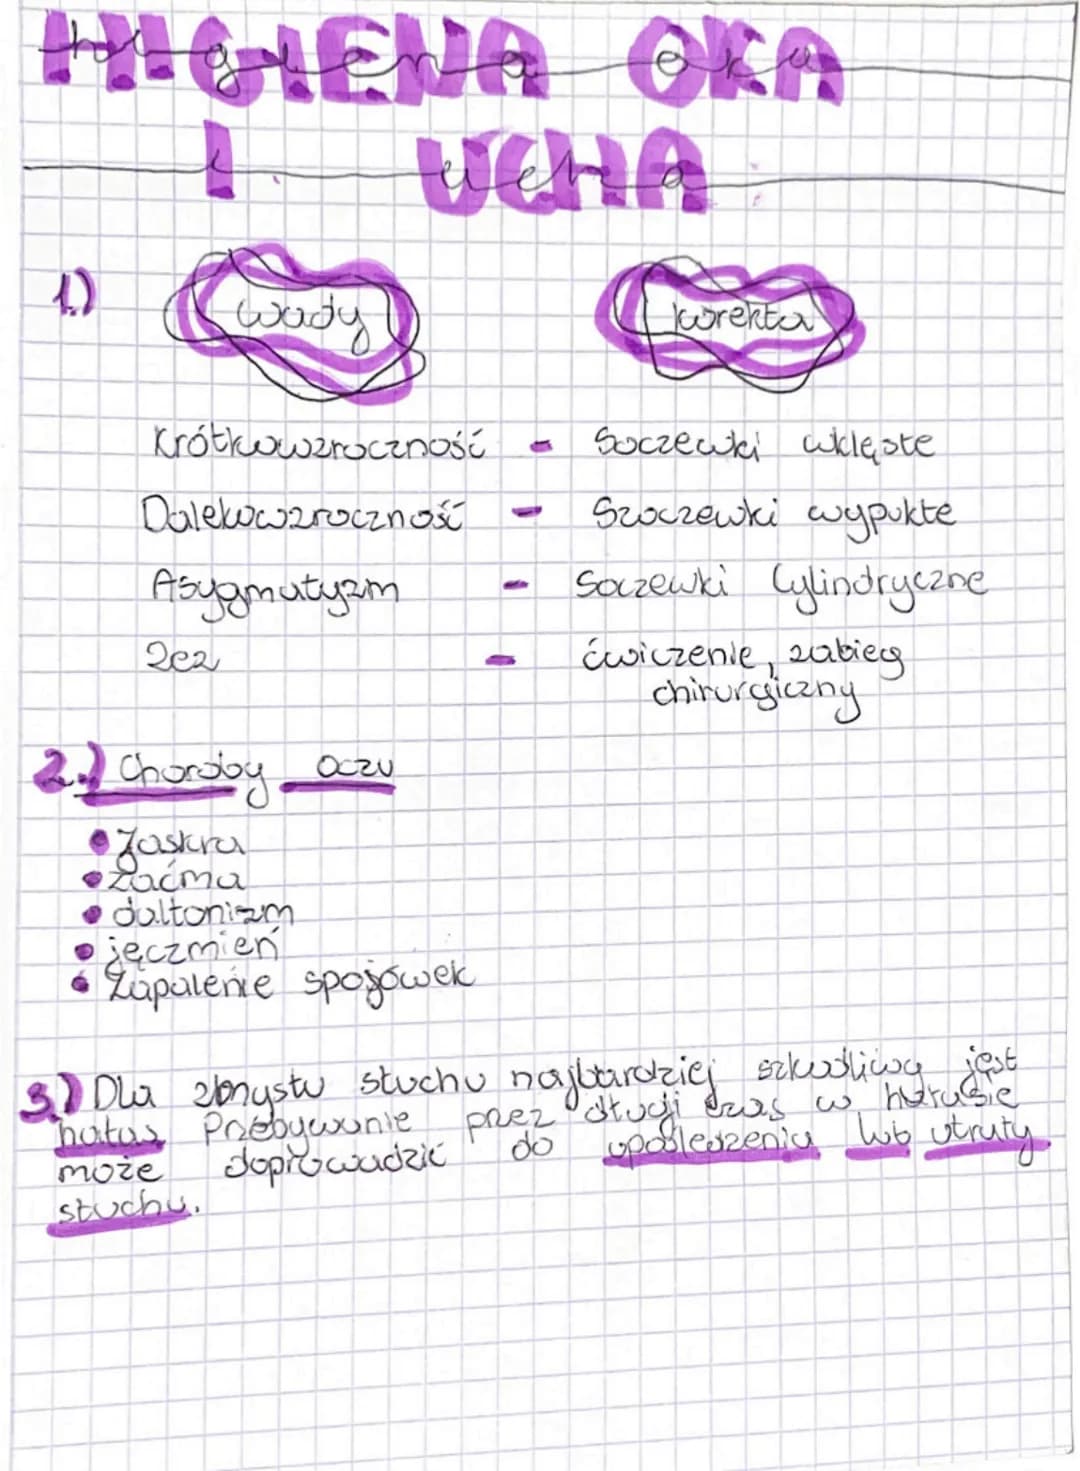 HIGIENA OKA
I UCHA
1.) wady korekta
Krótkowzroczność - Soczewki wklęste
Dalekowzroczność - Szoczewki wypukłe
Asygmatyzm - Soczewki Cylindryczne
Zez - ćwiczenie, zabieg
chirurgiczny
2.) Choroby oczu
• Jaskra
• zaćma
• daltonizm
• jęczmień
• Zapalenie spojówek
3.) Dla zmysłu słuchu najbardziej szkodliwy jest
hałas Przebywanie przez długi czas w hałasie
może doprowadzić do upośledzenia lub utraty
słuchu.